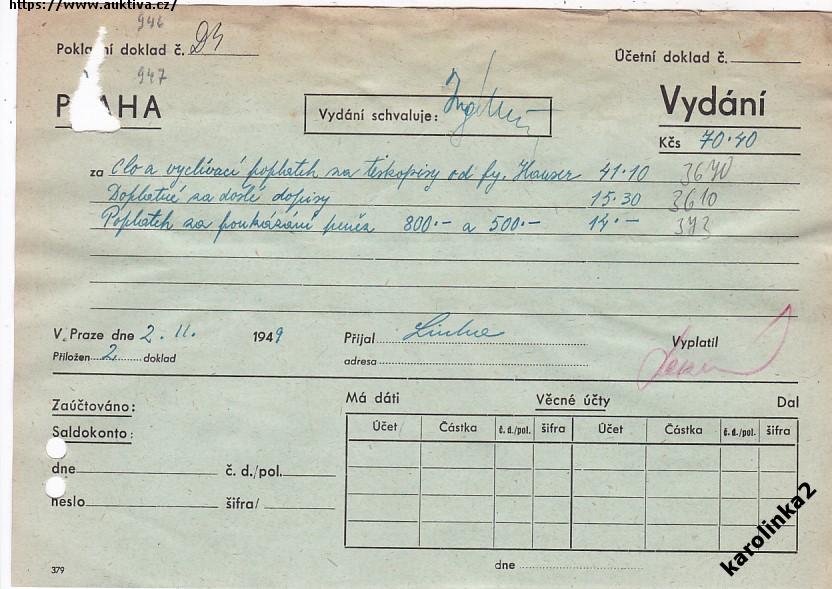 https://www.auktiva.cz/
946
Pokladní doklad č.
Účetní doklad č.
947
PRAHA
Vydání schvaluje:
Vydání
Kčs 70.40
za Clo a vyclívací poplatek za tiskopisy od fy. Hauser 41.10 3640
Doplatné za došlé dopisy 15.30 3610
Poplatek za poukázání peněz 800.- a 500.- 14.- 373
V Praze dne 2. 11. 1949 Přijal Vyplatil
Přiložen 2 doklad adresa
Zaúčtováno:
Má dáti Věcné účty Dal
Saldokonto:
Účet Částka č. d./pol. šifra Účet Částka č. d./pol. šifra
dne č. d./pol.
neslo šifra/
dne
379
karolinka2